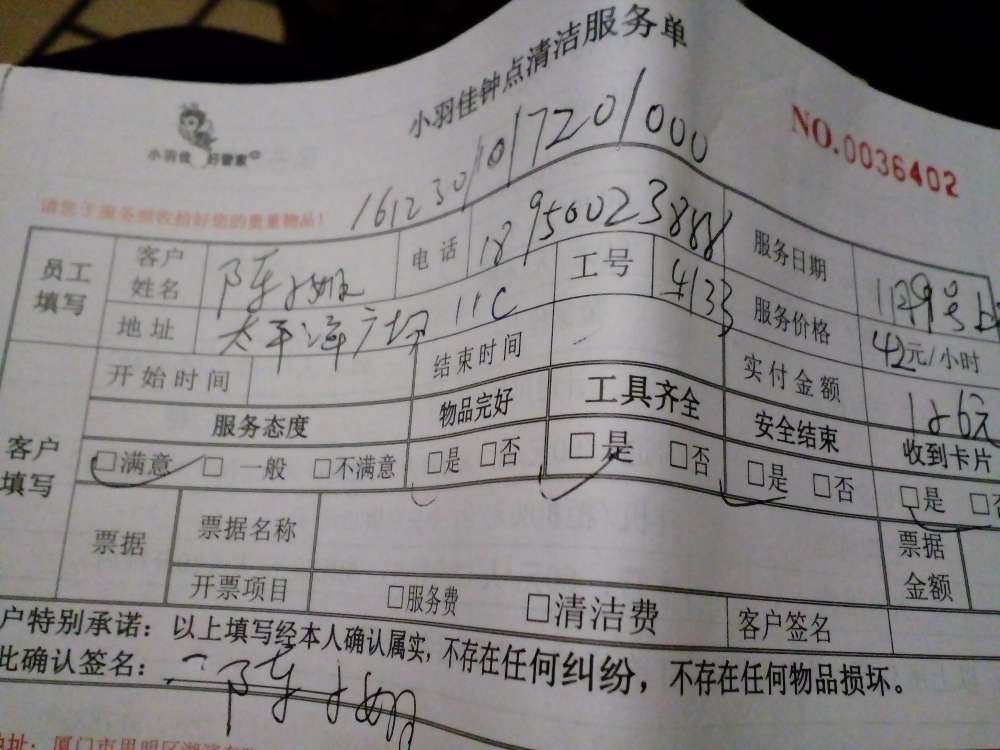 小羽佳钟点清洁服务单
小羽佳 好管家
NO.0036402
161230101720/000
员工填写 客户姓名 陈 电话 18950023888 服务日期
地址 太平洋广场 11C 工号 4133 服务价格 42元/小时
客户填写 开始时间 结束时间 实付金额 126元
服务态度 物品完好 工具齐全 安全结束 收到卡片
□满意 □一般 □不满意 □是 □否 □是 □否 □是 □否 □是 □否
票据 票据名称 票据金额
开票项目 □服务费 □清洁费 客户签名
户特别承诺：以上填写经本人确认属实，不存在任何纠纷，不存在任何物品损坏。
此确认签名： 陈